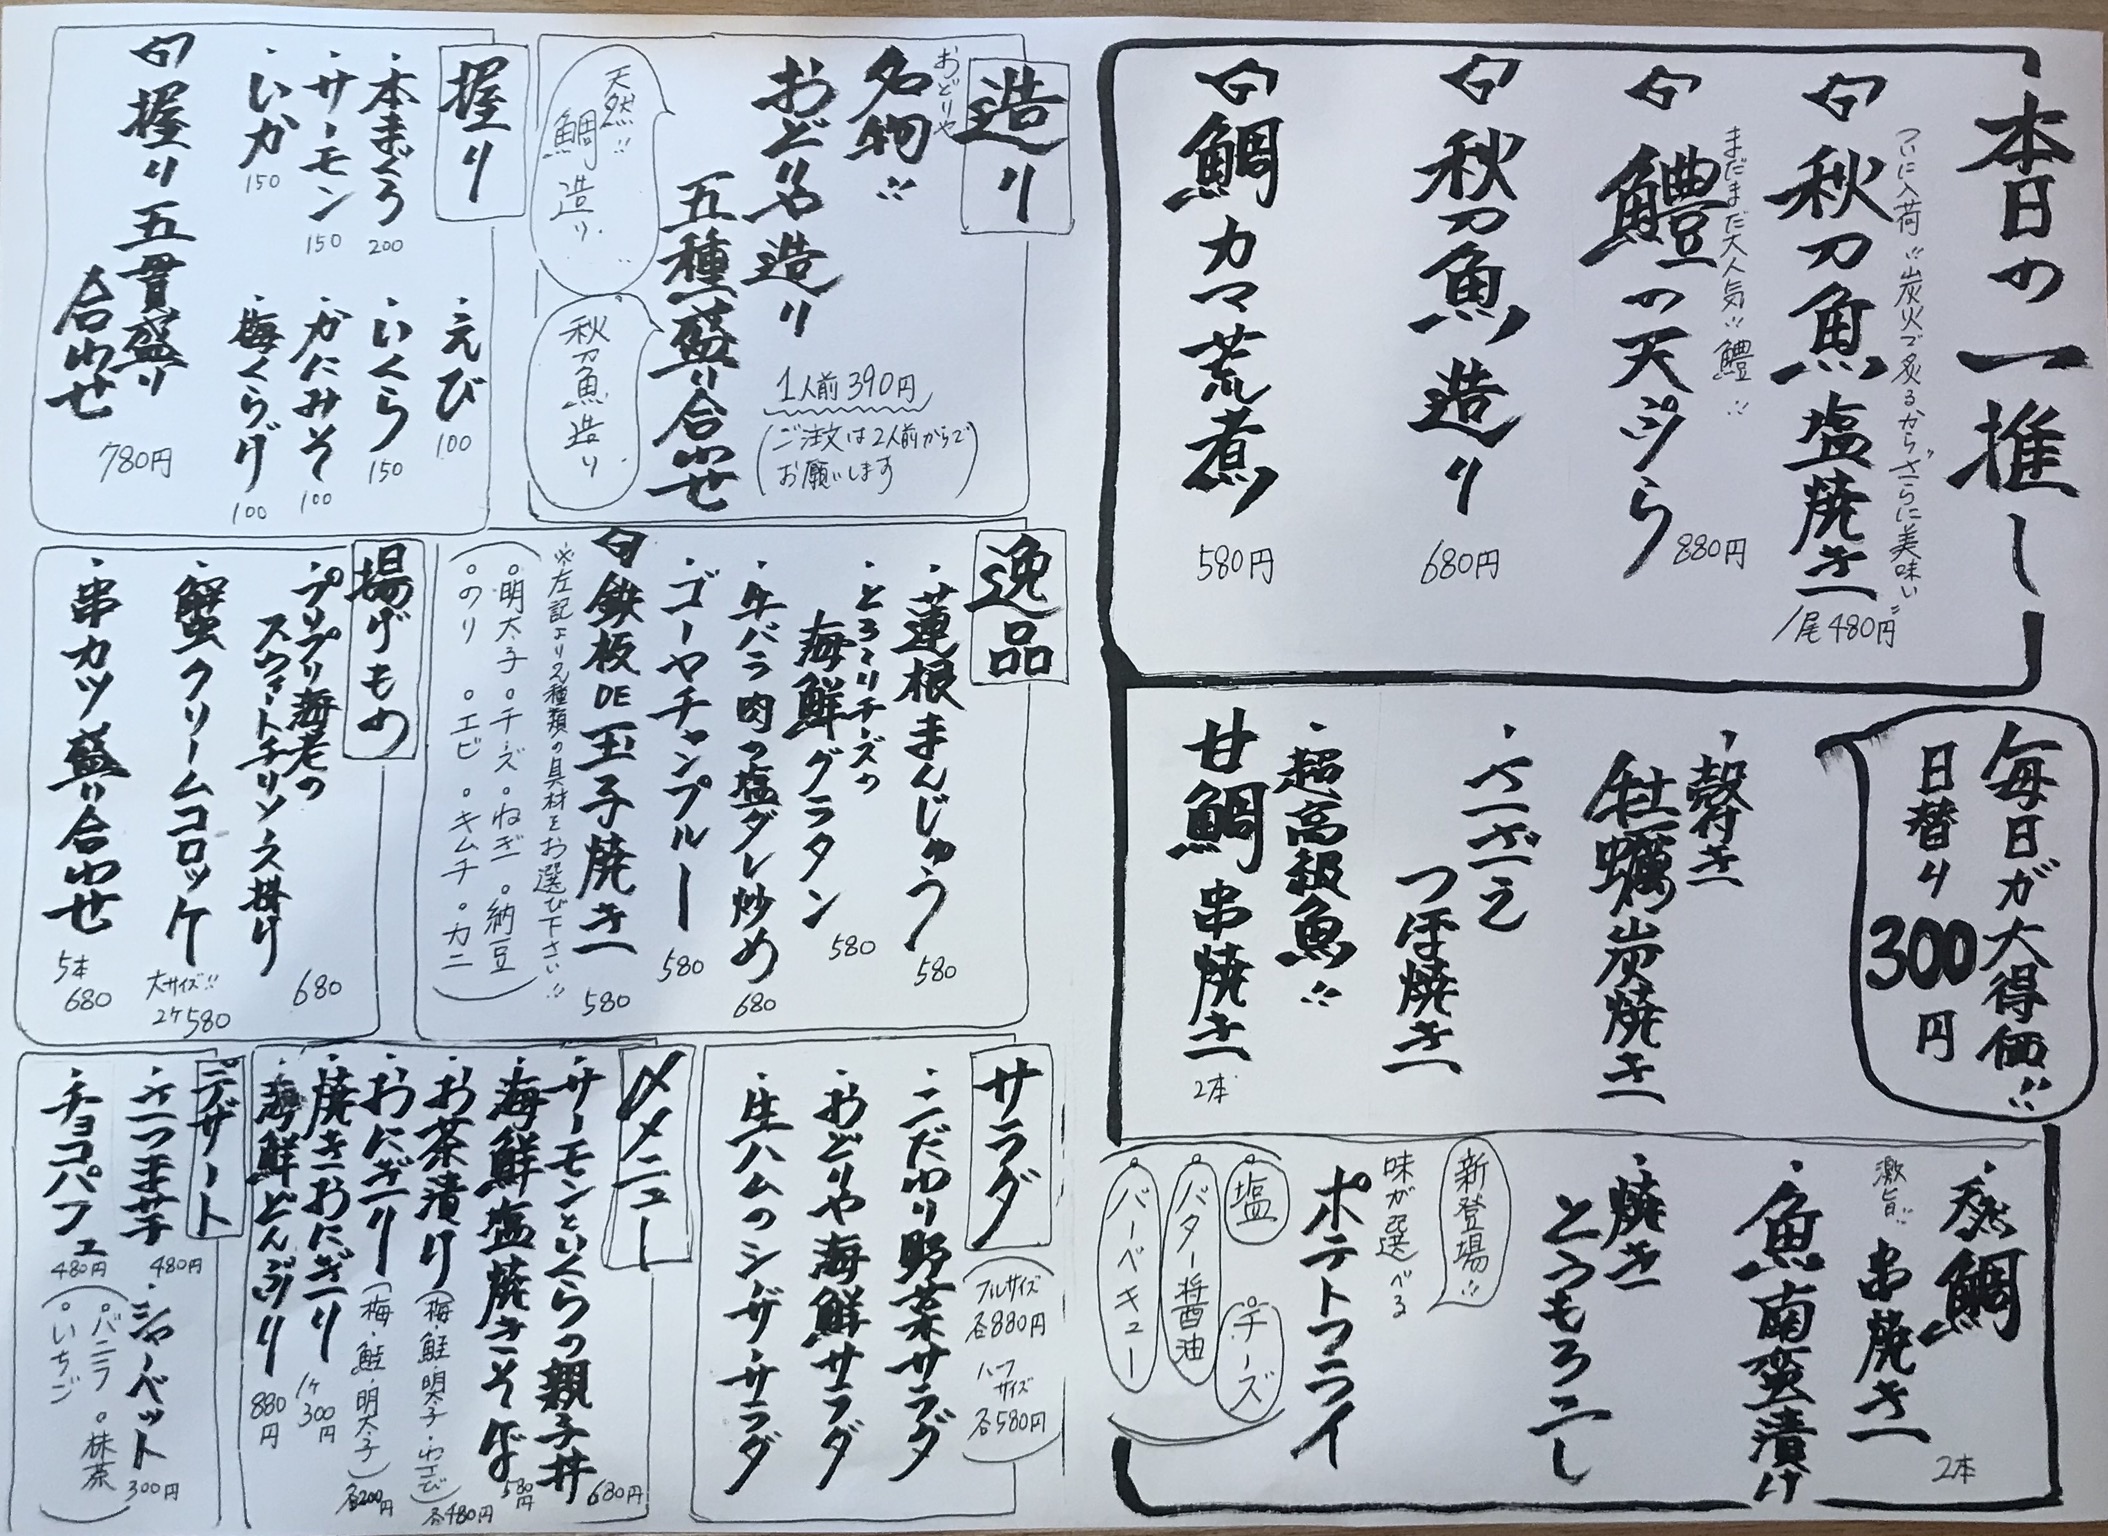 本日の一推し
ついに入荷!!炭火で炙るからざらに美味い!!
秋刀魚塩焼き
1尾480円
まだまだ大人気!!鱧!!
鱧の天ぷら
880円
秋刀魚造り
680円
鯛カマ荒煮
580円
毎日が大得価!!
日替り300円
・殻付き
牡蠣炭焼き
・さざえ
つぼ焼き
・超高級魚!!
甘鯛串焼き
2本
・天然鯛
激旨!!串焼き
2本
・魚南蛮漬け
・焼き
とうもろこし
新登場!!
味が選べる
ポテトフライ
塩
チーズ
バター醤油
バーベキュー
造り
おどりや
名物!!
おどりや造り
五種盛り合わせ
1人前390円
(ご注文は2人前からで
お願いします)
天然!!
鯛造り
秋刀魚造り
握り
・本まぐろ
200
・サーモン
150
・いか
150
・えび
100
・いくら
150
・かにみそ
100
・梅くらげ
100
握り五貫盛り
合わせ
780円
逸品
・蓮根まんじゅう
580
・とろ〜りチーズの
海鮮グラタン
580
・牛バラ肉の塩ダレ炒め
680
・ゴーヤチャンプルー
580
鉄板DE玉子焼き
580
※左記より2種類の具材をお選び下さい!!
(。明太子。チーズ。ねぎ。納豆
。のり。エビ。キムチ。カニ)
揚げもの
・プリプリ海老の
スウィートチリソース掛け
680
・蟹クリームコロッケ
大サイズ!!
2ケ580
・串カツ盛り合わせ
5本
680
サラダ
(フルサイズ
各880円
ハーフ
サイズ
各580円)
・こだわり野菜サラダ
・おどりや海鮮サラダ
・生ハムのシーザーサラダ
〆メニュー
・サーモンといくらの親子丼
680円
・海鮮塩焼きそば
580円
・お茶漬け(梅・鮭・明太子・わさび)
各480円
・おにぎり(梅・鮭・明太子)
各200円
・焼きおにぎり
1ケ
300円
・海鮮どんぶり
880円
デザート
・さつま芋
480円
・シャーベット
300円
・チョコパフェ
480円
(。バニラ。抹茶
。いちご)